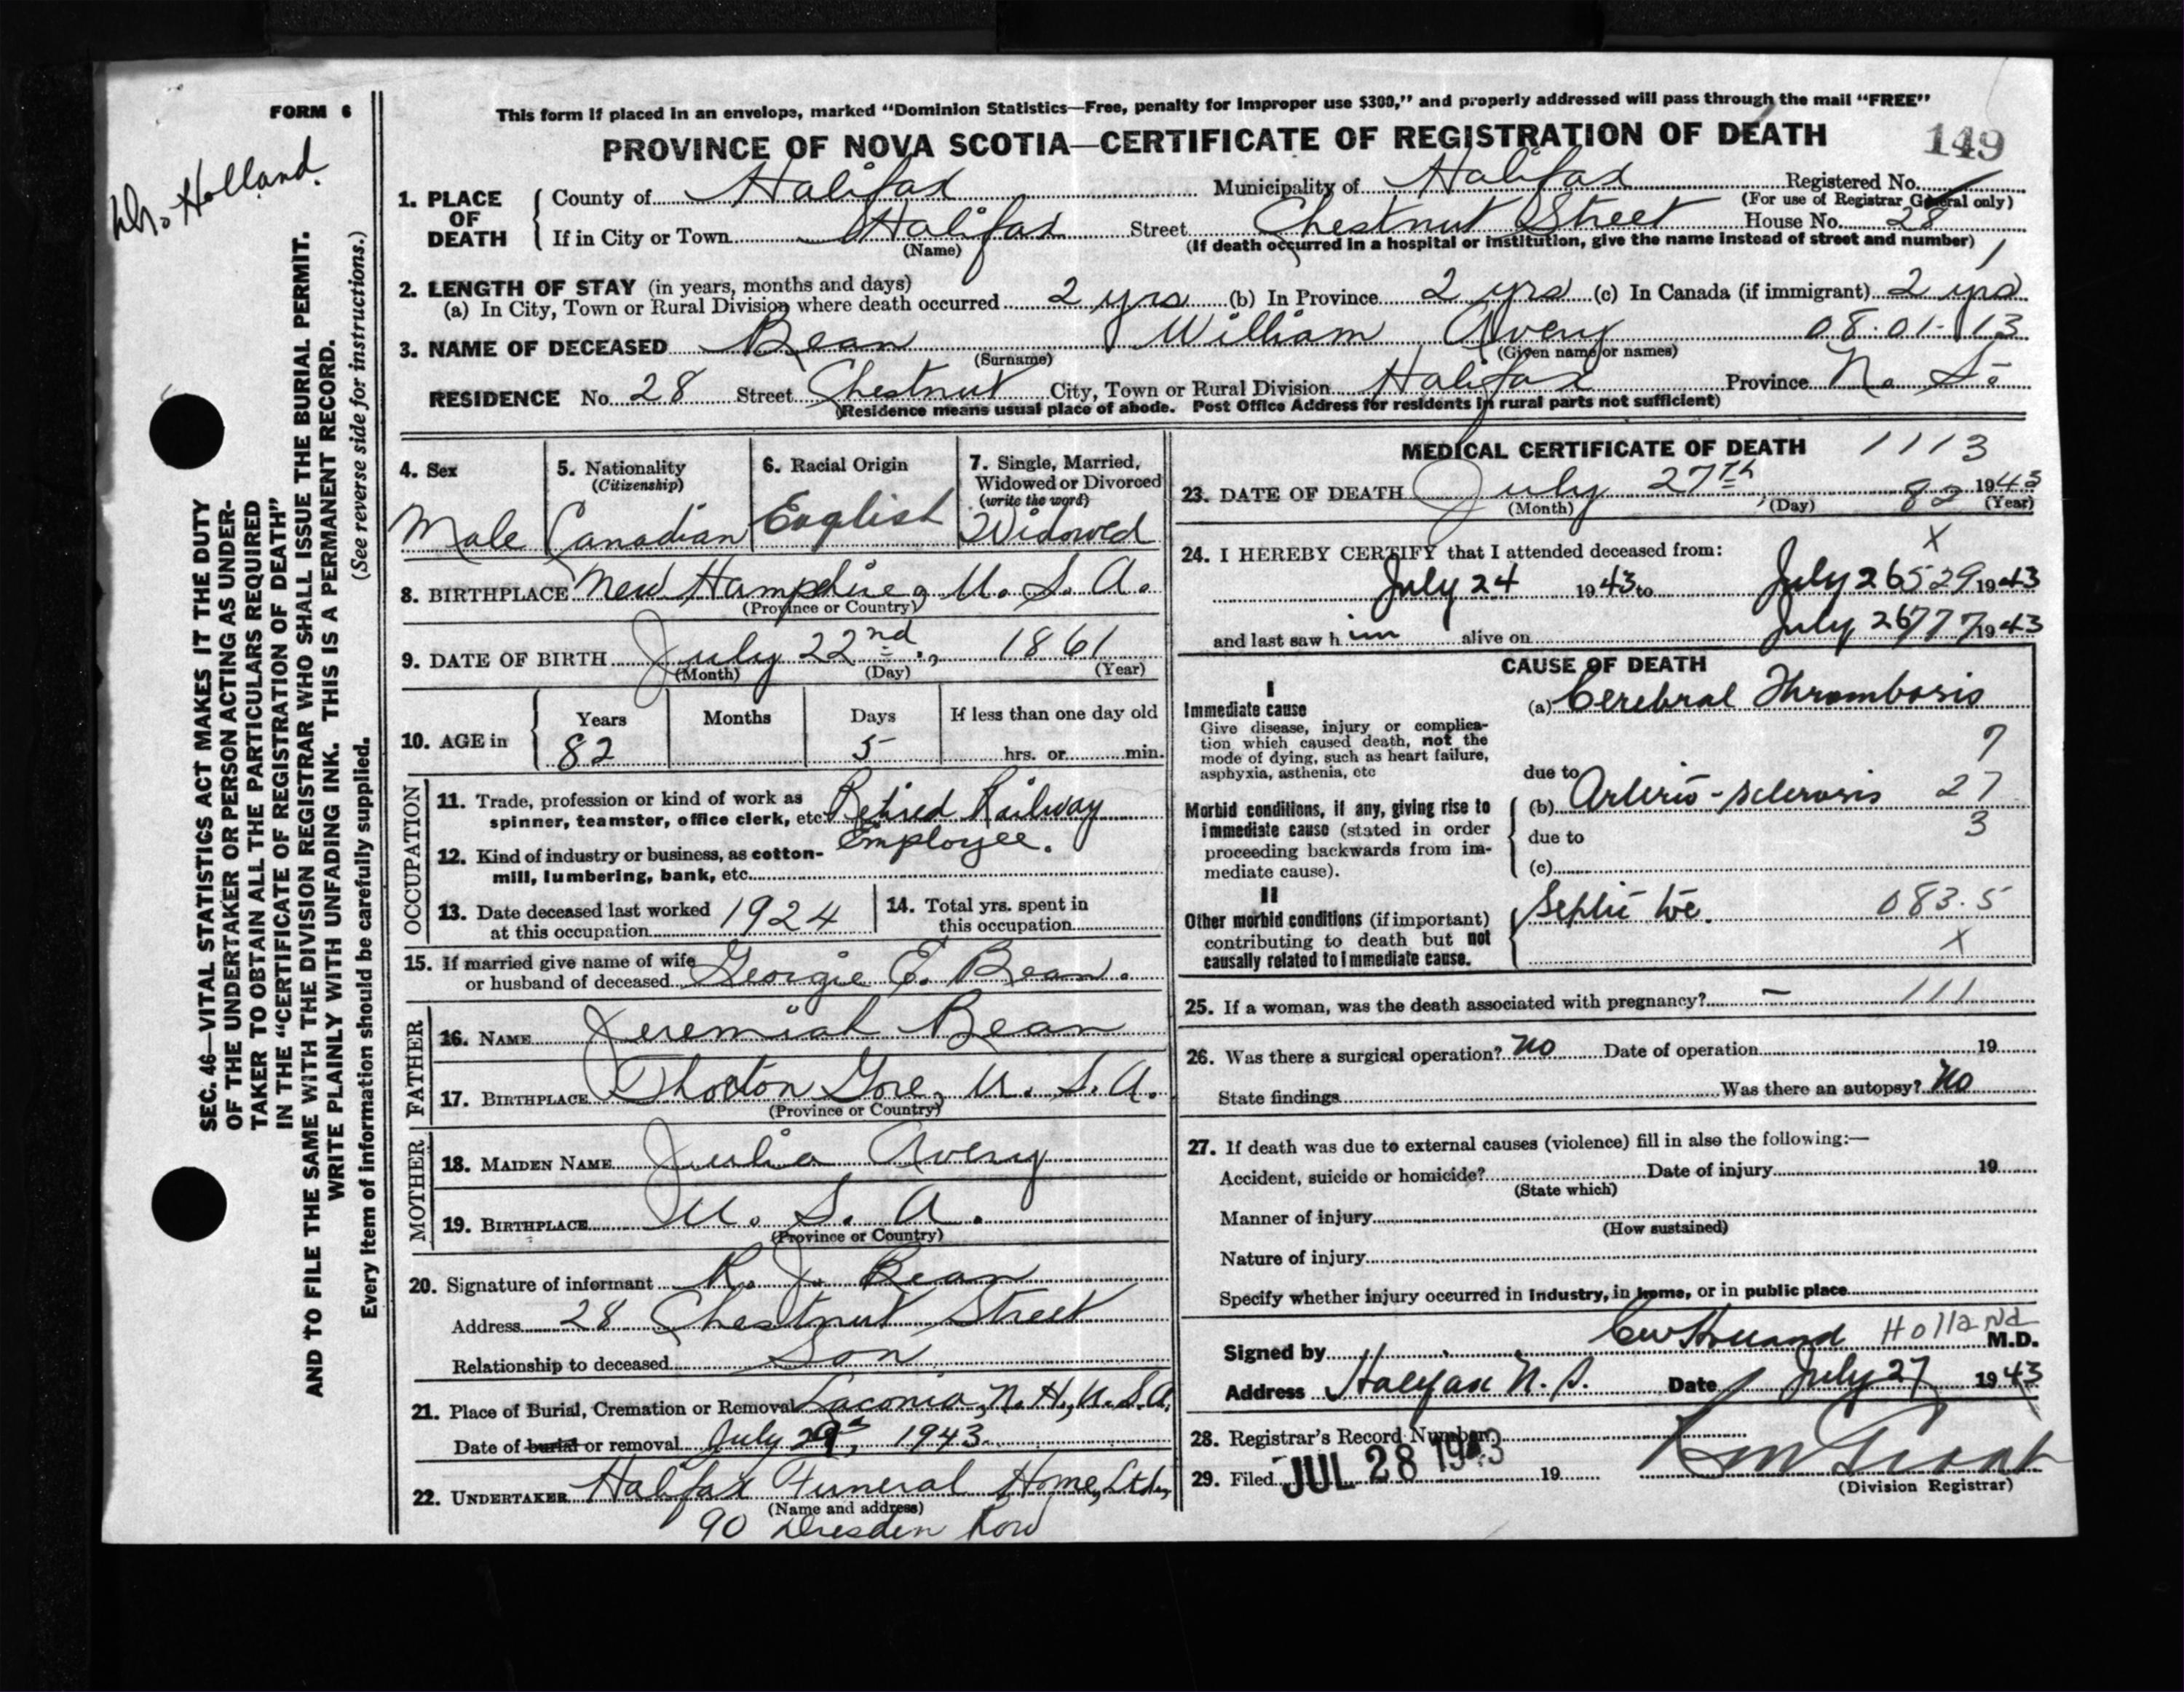 FORM 6
Dr. Holland.
SEC. 46—VITAL STATISTICS ACT MAKES IT THE DUTY
OF THE UNDERTAKER OR PERSON ACTING AS UNDER-
TAKER TO OBTAIN ALL THE PARTICULARS REQUIRED
IN THE "CERTIFICATE OF REGISTRATION OF DEATH"
AND TO FILE THE SAME WITH THE DIVISION REGISTRAR WHO SHALL ISSUE THE BURIAL PERMIT.
WRITE PLAINLY WITH UNFADING INK. THIS IS A PERMANENT RECORD.
Every item of information should be carefully supplied. (See reverse side for instructions.)
This form if placed in an envelope, marked "Dominion Statistics—Free, penalty for improper use $300," and properly addressed will pass through the mail "FREE"
PROVINCE OF NOVA SCOTIA—CERTIFICATE OF REGISTRATION OF DEATH 149
1. PLACE OF DEATH
County of Halifax Municipality of Halifax Registered No.
(For use of Registrar General only)
If in City or Town Halifax Street Chestnut Street House No. 28
(Name) (If death occurred in a hospital or institution, give the name instead of street and number)
2. LENGTH OF STAY (in years, months and days)
(a) In City, Town or Rural Division where death occurred 2 yrs (b) In Province 2 yrs (c) In Canada (if immigrant) 2 yrs
3. NAME OF DECEASED Bean William Avery 08.01-13
(Surname) (Given name or names)
RESIDENCE No. 28 Street Chestnut City, Town or Rural Division Halifax Province N. S.
(Residence means usual place of abode. Post Office Address for residents in rural parts not sufficient)
4. Sex
Male
5. Nationality
(Citizenship)
Canadian
6. Racial Origin
English
7. Single, Married,
Widowed or Divorced
(write the word)
Widowed
8. BIRTHPLACE New Hampshire, U. S. A.
(Province or Country)
9. DATE OF BIRTH July 22nd, 1861
(Month) (Day) (Year)
10. AGE in
Years Months Days If less than one day old
82 5 hrs. or min.
OCCUPATION
11. Trade, profession or kind of work as
spinner, teamster, office clerk, etc. Retired Railway
Employee.
12. Kind of industry or business, as cotton-
mill, lumbering, bank, etc.
13. Date deceased last worked
at this occupation 1924
14. Total yrs. spent in
this occupation
15. If married give name of wife
or husband of deceased Georgie E. Bean.
FATHER
16. NAME Jeremiah Bean
17. BIRTHPLACE Thorton Gore, U. S. A.
(Province or Country)
MOTHER
18. MAIDEN NAME Julia Avery
19. BIRTHPLACE U. S. A.
(Province or Country)
20. Signature of informant R. J. Bean
Address 28 Chestnut Street
Relationship to deceased Son
21. Place of Burial, Cremation or Removal Laconia, N. H., U.S.A.
Date of burial or removal July 1943
22. UNDERTAKER Halifax Funeral Home, Ltd.,
(Name and address)
90 Dresden Row
MEDICAL CERTIFICATE OF DEATH 1113
23. DATE OF DEATH July 27th 82 1943
(Month) (Day) (Year)
X
24. I HEREBY CERTIFY that I attended deceased from:
July 24 1943 to July 26 529 1943
and last saw him alive on July 26 777 1943
CAUSE OF DEATH
I
Immediate cause
Give disease, injury or complica-
tion which caused death, not the
mode of dying, such as heart failure,
asphyxia, asthenia, etc
(a) Cerebral Thrombosis
7
due to
Morbid conditions, if any, giving rise to
immediate cause (stated in order
proceeding backwards from im-
mediate cause).
(b) Arterio-sclerosis 27
due to 3
(c)
II
Other morbid conditions (if important)
contributing to death but not
causally related to immediate cause.
Septic toe. 083.5
X
25. If a woman, was the death associated with pregnancy? – 111
26. Was there a surgical operation? No Date of operation 19
State findings Was there an autopsy? No
27. If death was due to external causes (violence) fill in also the following:—
Accident, suicide or homicide? Date of injury 19
(State which)
Manner of injury
(How sustained)
Nature of injury
Specify whether injury occurred in industry, in home, or in public place
Signed by CW Holland Holland M.D.
Address Halifax N. S. Date July 27 1943
28. Registrar's Record Number
29. Filed JUL 28 1943 19
(Division Registrar)